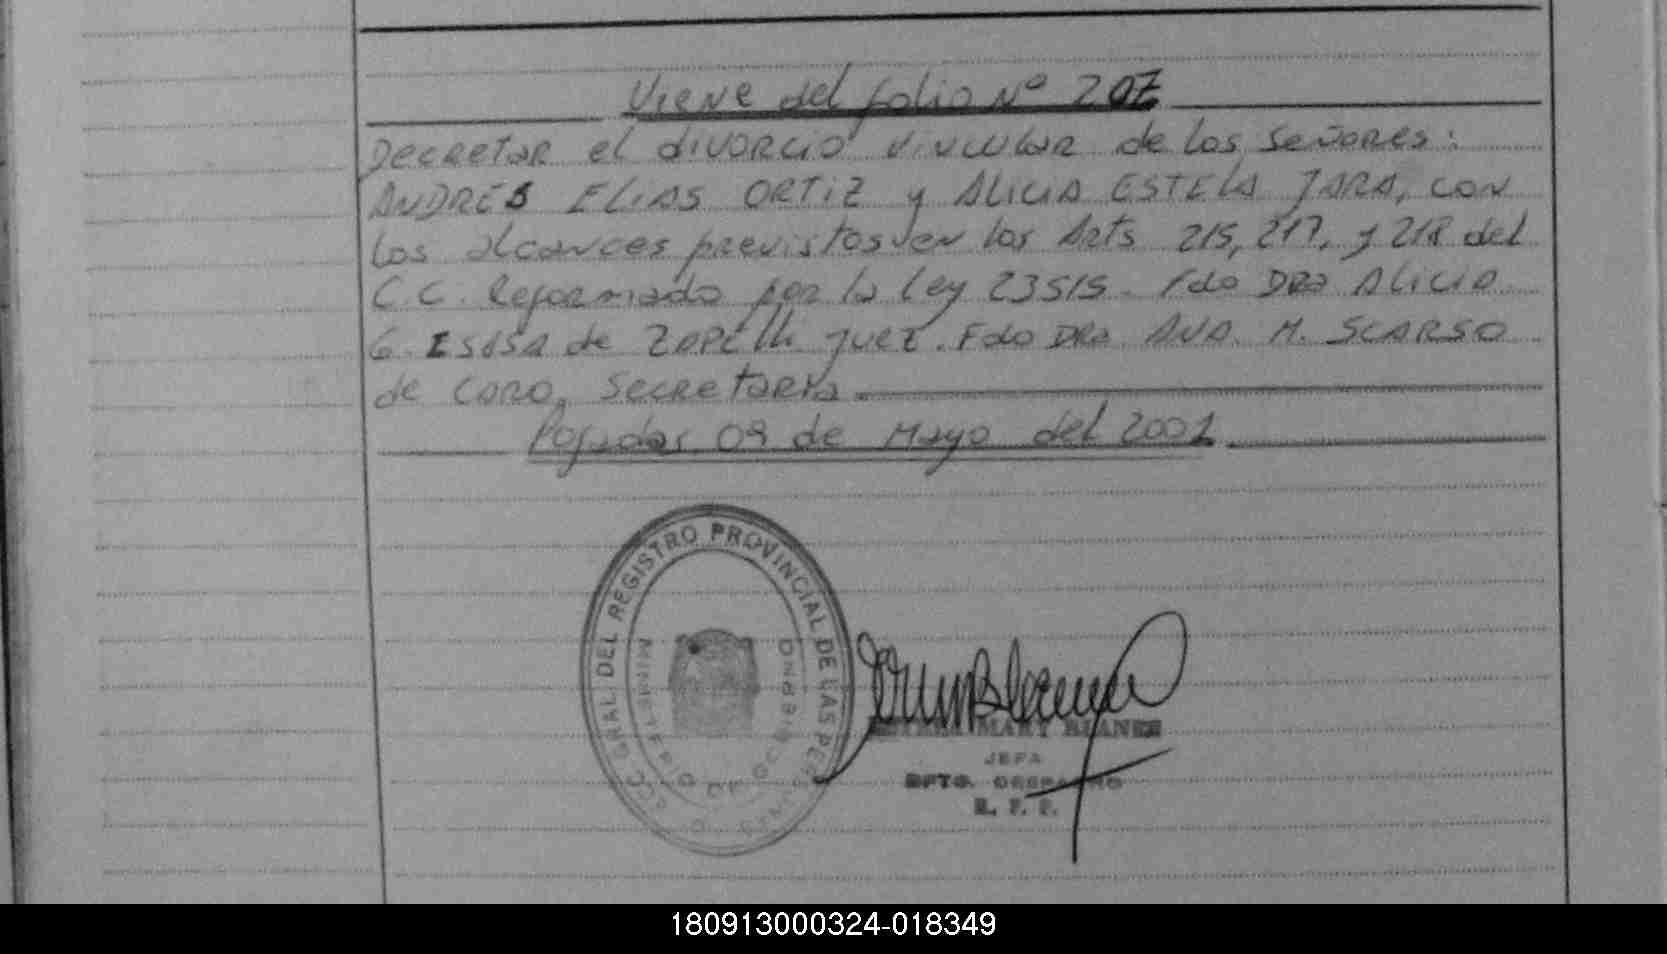 Viene del folio Nº 207
Decretar el divorcio vincular de los Señores:
ANDRÉS ELIAS ORTIZ y ALICIA ESTELA JARA, con
los alcances previstos en los Arts 215, 217, y 218 del
C.C. Reformado por la Ley 23515. Fdo DRA Alicia
G. de juez. Fdo DRA ANA. M. SCARSO
de CARO, Secretaria
Posadas 09 de Mayo del 2001
GRAL. DEL REGISTRO PROVINCIAL DE LAS PERSONAS
MINISTERIO DE GOBIERNO
MARY
JEFA
DPTO.
R. P. P.
180913000324-018349